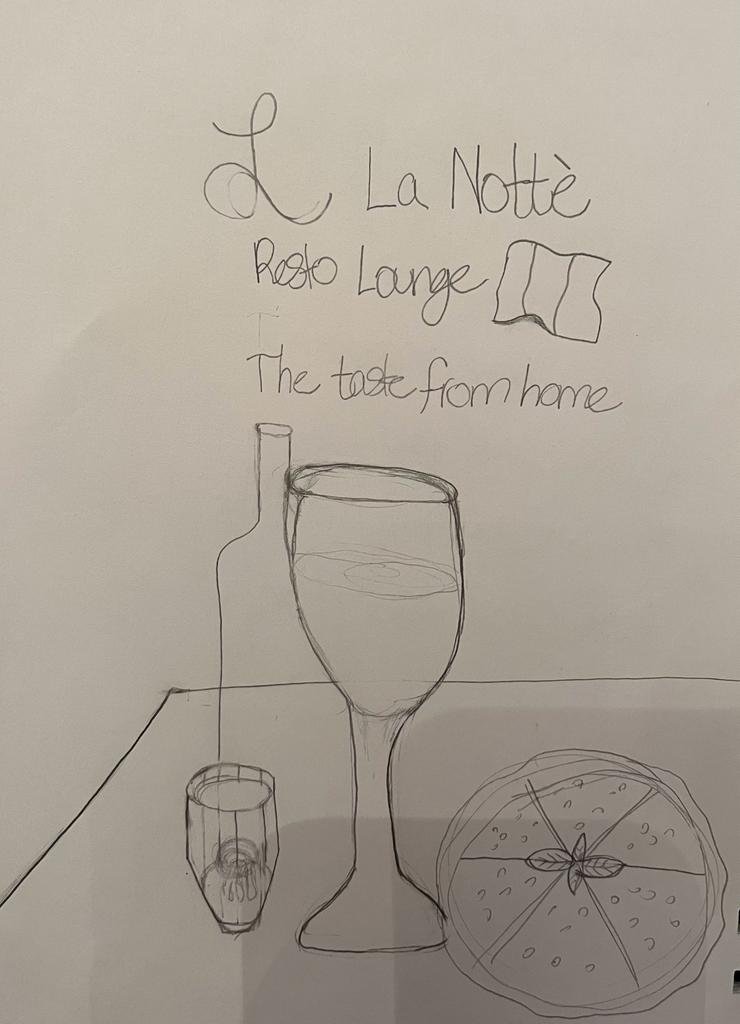 L La Nottè
Resto Lounge
The taste from home